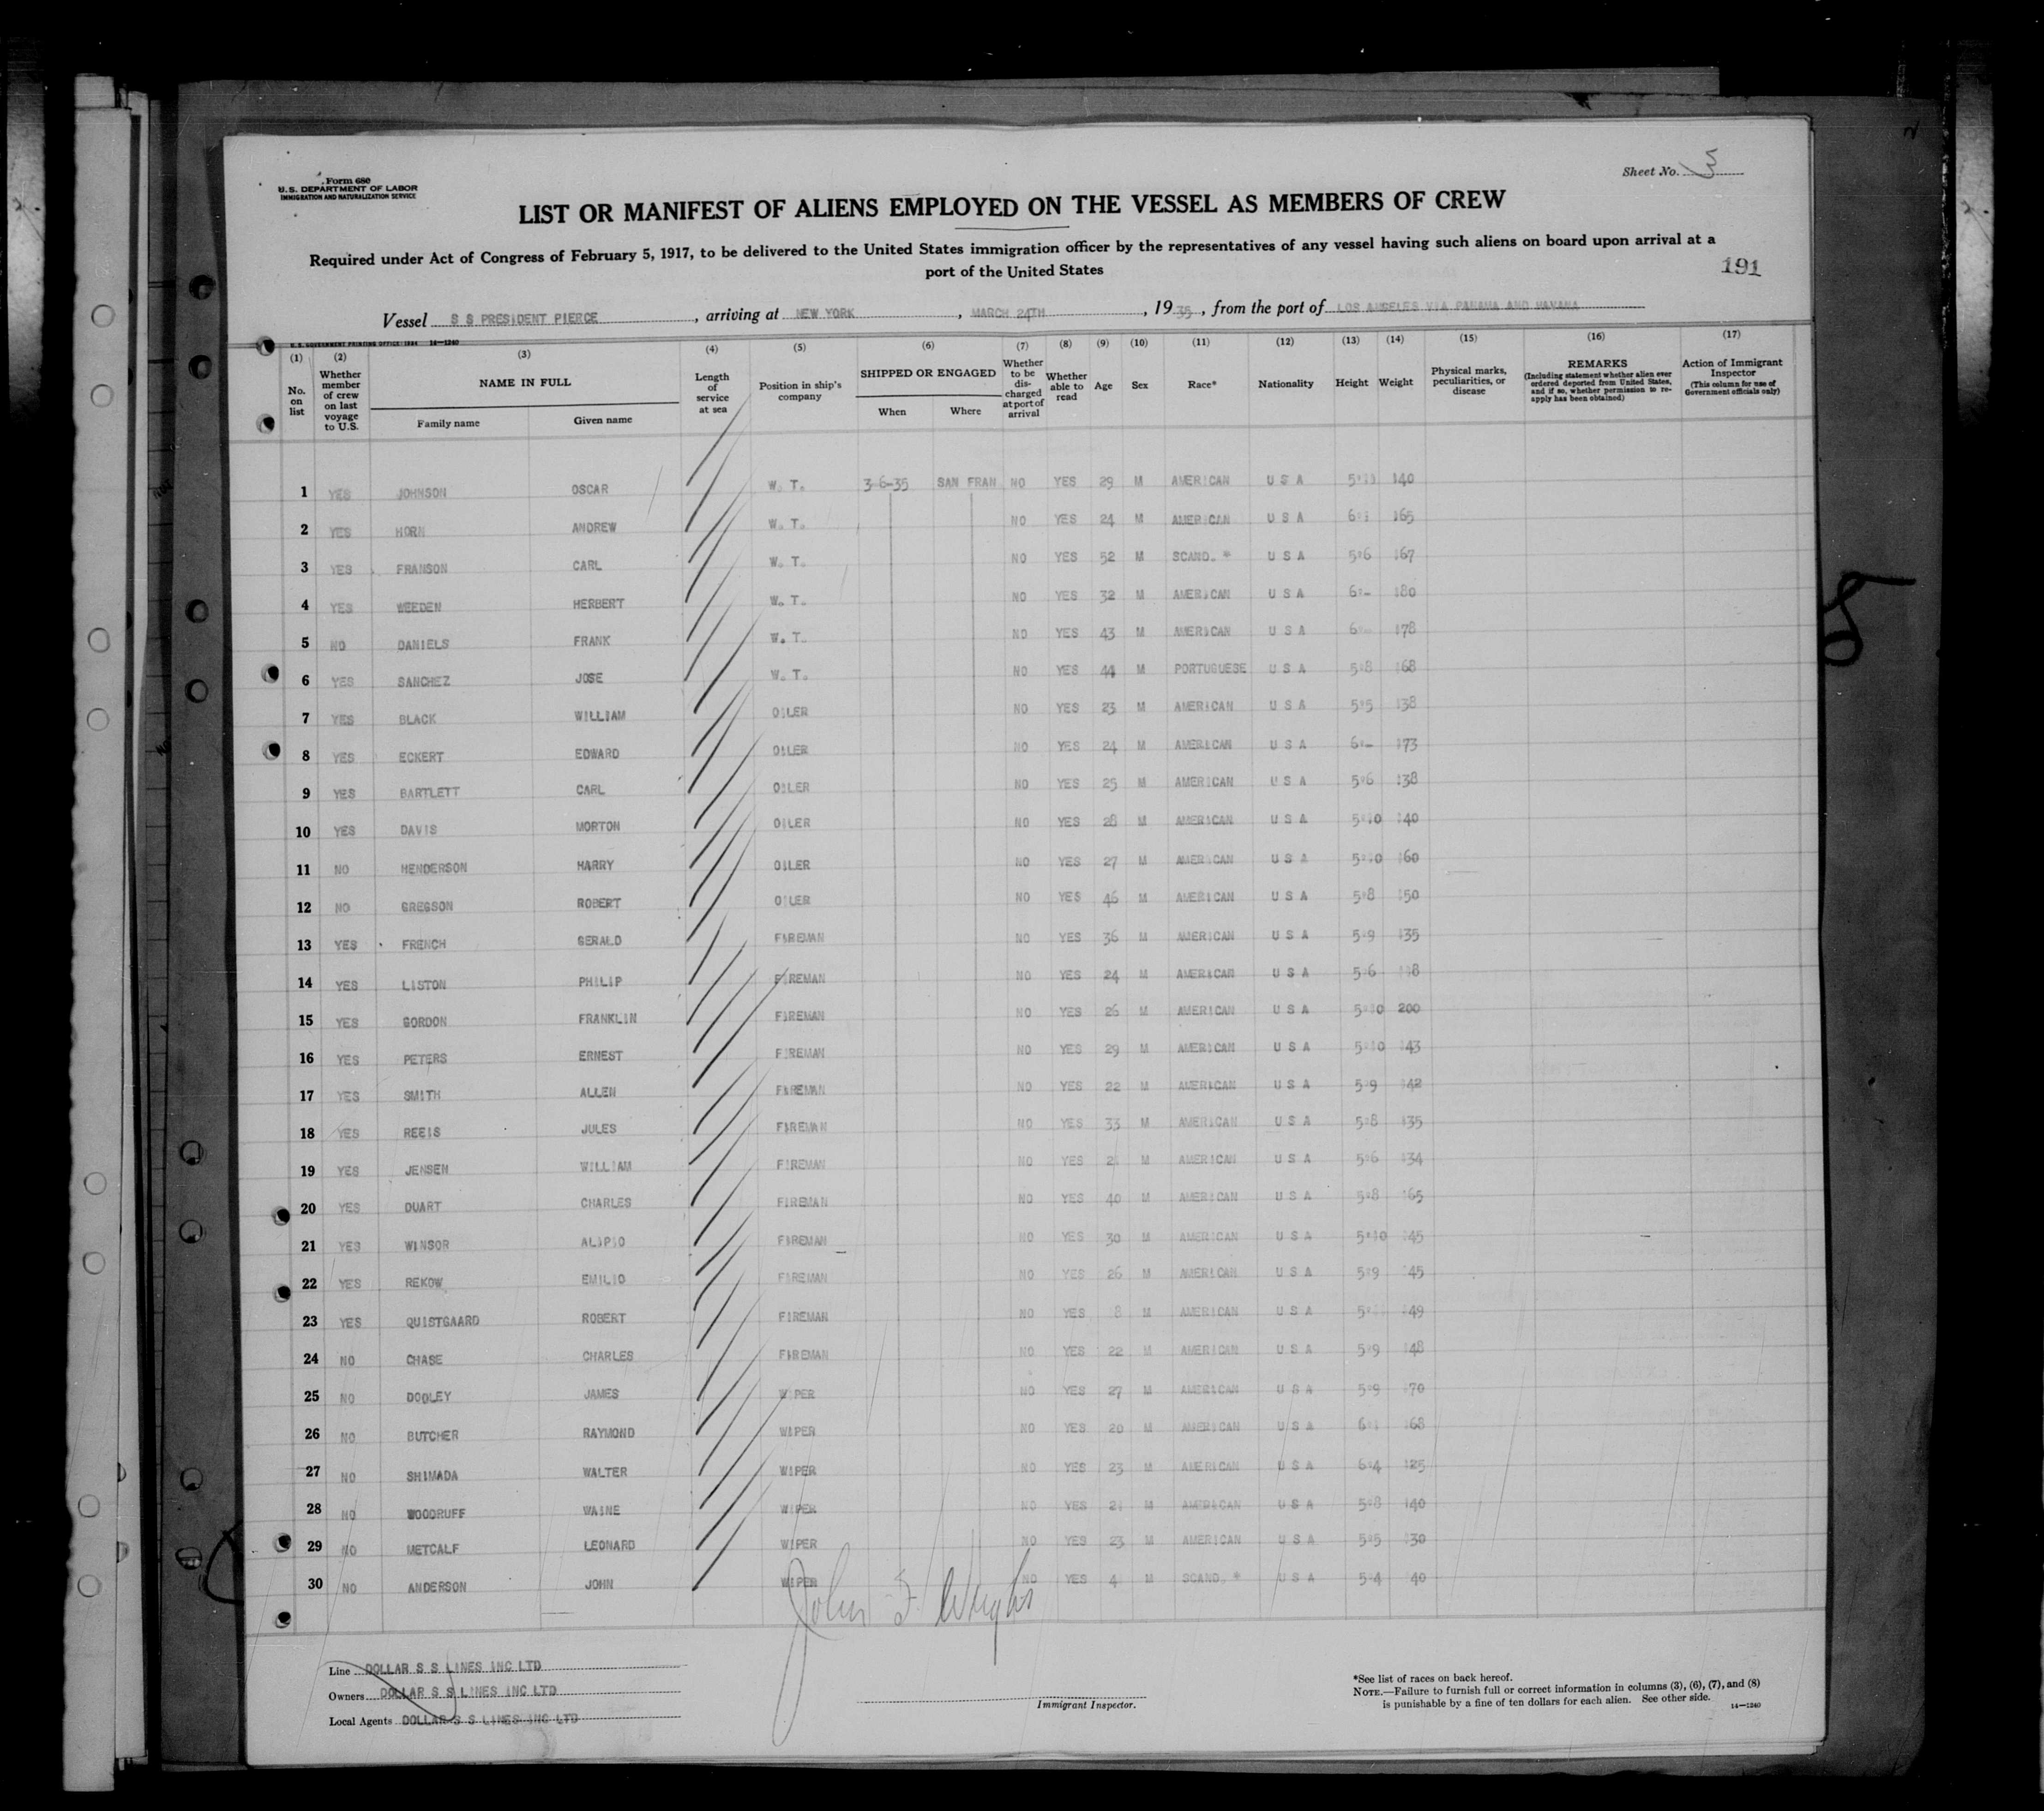 Form 680
U.S. DEPARTMENT OF LABOR
IMMIGRATION AND NATURALIZATION SERVICE
Sheet No. 5
LIST OR MANIFEST OF ALIENS EMPLOYED ON THE VESSEL AS MEMBERS OF CREW
Required under Act of Congress of February 5, 1917, to be delivered to the United States immigration officer by the representatives of any vessel having such aliens on board upon arrival at a
port of the United States
191
Vessel S S PRESIDENT PIERCE, arriving at NEW YORK, MARCH 24TH, 1935, from the port of LOS ANGELES VIA PANAMA AND HAVANA
U. S. GOVERNMENT PRINTING OFFICE: 1934 14—1240
(1) (2) (3) (4) (5) (6) (7) (8) (9) (10) (11) (12) (13) (14) (15) (16) (17)
No. on list
Whether member of crew on last voyage to U.S.
NAME IN FULL
Family name
Given name
Length of service at sea
Position in ship's company
SHIPPED OR ENGAGED
When
Where
Whether to be discharged at port of arrival
Whether able to read
Age
Sex
Race*
Nationality
Height
Weight
Physical marks, peculiarities, or disease
REMARKS
(Including statement whether alien ever ordered deported from United States, and if so, whether permission to reapply has been obtained)
Action of Immigrant Inspector
(This column for use of Government officials only)
1 YES JOHNSON OSCAR W. T. 3-6-35 SAN FRAN NO YES 29 M AMERICAN U S A 140
2 YES HORN ANDREW W. T. NO YES 24 M AMERICAN U S A 165
3 YES FRANSON CARL W. T. NO YES 52 M SCAND. * U S A 5:6 167
4 YES WEEDEN HERBERT W. T. NO YES 32 M AMERICAN U S A 6:- 180
5 NO DANIELS FRANK W. T. NO YES 43 M AMERICAN U S A 6:- 178
6 YES SANCHEZ JOSE W. T. NO YES 44 M PORTUGUESE U S A 5:8 168
7 YES BLACK WILLIAM OILER NO YES 23 M AMERICAN U S A 5:5 138
8 YES ECKERT EDWARD OILER NO YES 24 M AMERICAN U S A 6:- 173
9 YES BARTLETT CARL OILER NO YES 25 M AMERICAN U S A 5:6 138
10 YES DAVIS MORTON OILER NO YES 28 M AMERICAN U S A 5:10 140
11 NO HENDERSON HARRY OILER NO YES 27 M AMERICAN U S A 5:10 160
12 NO GREGSON ROBERT OILER NO YES 46 M AMERICAN U S A 5:8 150
13 YES FRENCH GERALD FIREMAN NO YES 36 M AMERICAN U S A 5:9 135
14 YES LISTON PHILIP FIREMAN NO YES 24 M AMERICAN U S A 5:6
15 YES GORDON FRANKLIN FIREMAN NO YES 26 M AMERICAN U S A 5:10 200
16 YES PETERS ERNEST FIREMAN NO YES 29 M AMERICAN U S A 5:10 143
17 YES SMITH ALLEN FIREMAN NO YES 22 M AMERICAN U S A 5:9 142
18 YES REEIS JULES FIREMAN NO YES 33 M AMERICAN U S A 5:8 135
19 YES JENSEN WILLIAM FIREMAN NO YES M AMERICAN U S A 5:6 134
20 YES DUART CHARLES FIREMAN NO YES 40 M AMERICAN U S A 5:8 165
21 YES WINSOR ALIPIO FIREMAN NO YES 30 M AMERICAN U S A 5:10 145
22 YES REKOW EMILIO FIREMAN NO YES 26 M AMERICAN U S A 5:9 145
23 YES QUISTGAARD ROBERT FIREMAN NO YES M AMERICAN U S A 149
24 NO CHASE CHARLES FIREMAN NO YES 22 M AMERICAN U S A 5:9 148
25 NO DOOLEY JAMES WIPER NO YES 27 M AMERICAN U S A 5:9 170
26 NO BUTCHER RAYMOND WIPER NO YES 20 M AMERICAN U S A 168
27 NO SHIMADA WALTER WIPER NO YES 23 M AMERICAN U S A 6:4 125
28 NO WOODRUFF WAINE WIPER NO YES 21 M AMERICAN U S A 5:8 140
29 NO METCALF LEONARD WIPER NO YES 23 M AMERICAN U S A 5:5 130
30 NO ANDERSON JOHN WIPER NO YES M SCAND. * U S A 5:4
John F Wright
Line DOLLAR S S LINES INC LTD
Owners DOLLAR S S LINES INC LTD
Local Agents DOLLAR S S LINES INC LTD
Immigrant Inspector.
*See list of races on back hereof.
NOTE.—Failure to furnish full or correct information in columns (3), (6), (7), and (8)
is punishable by a fine of ten dollars for each alien. See other side.
14—1240